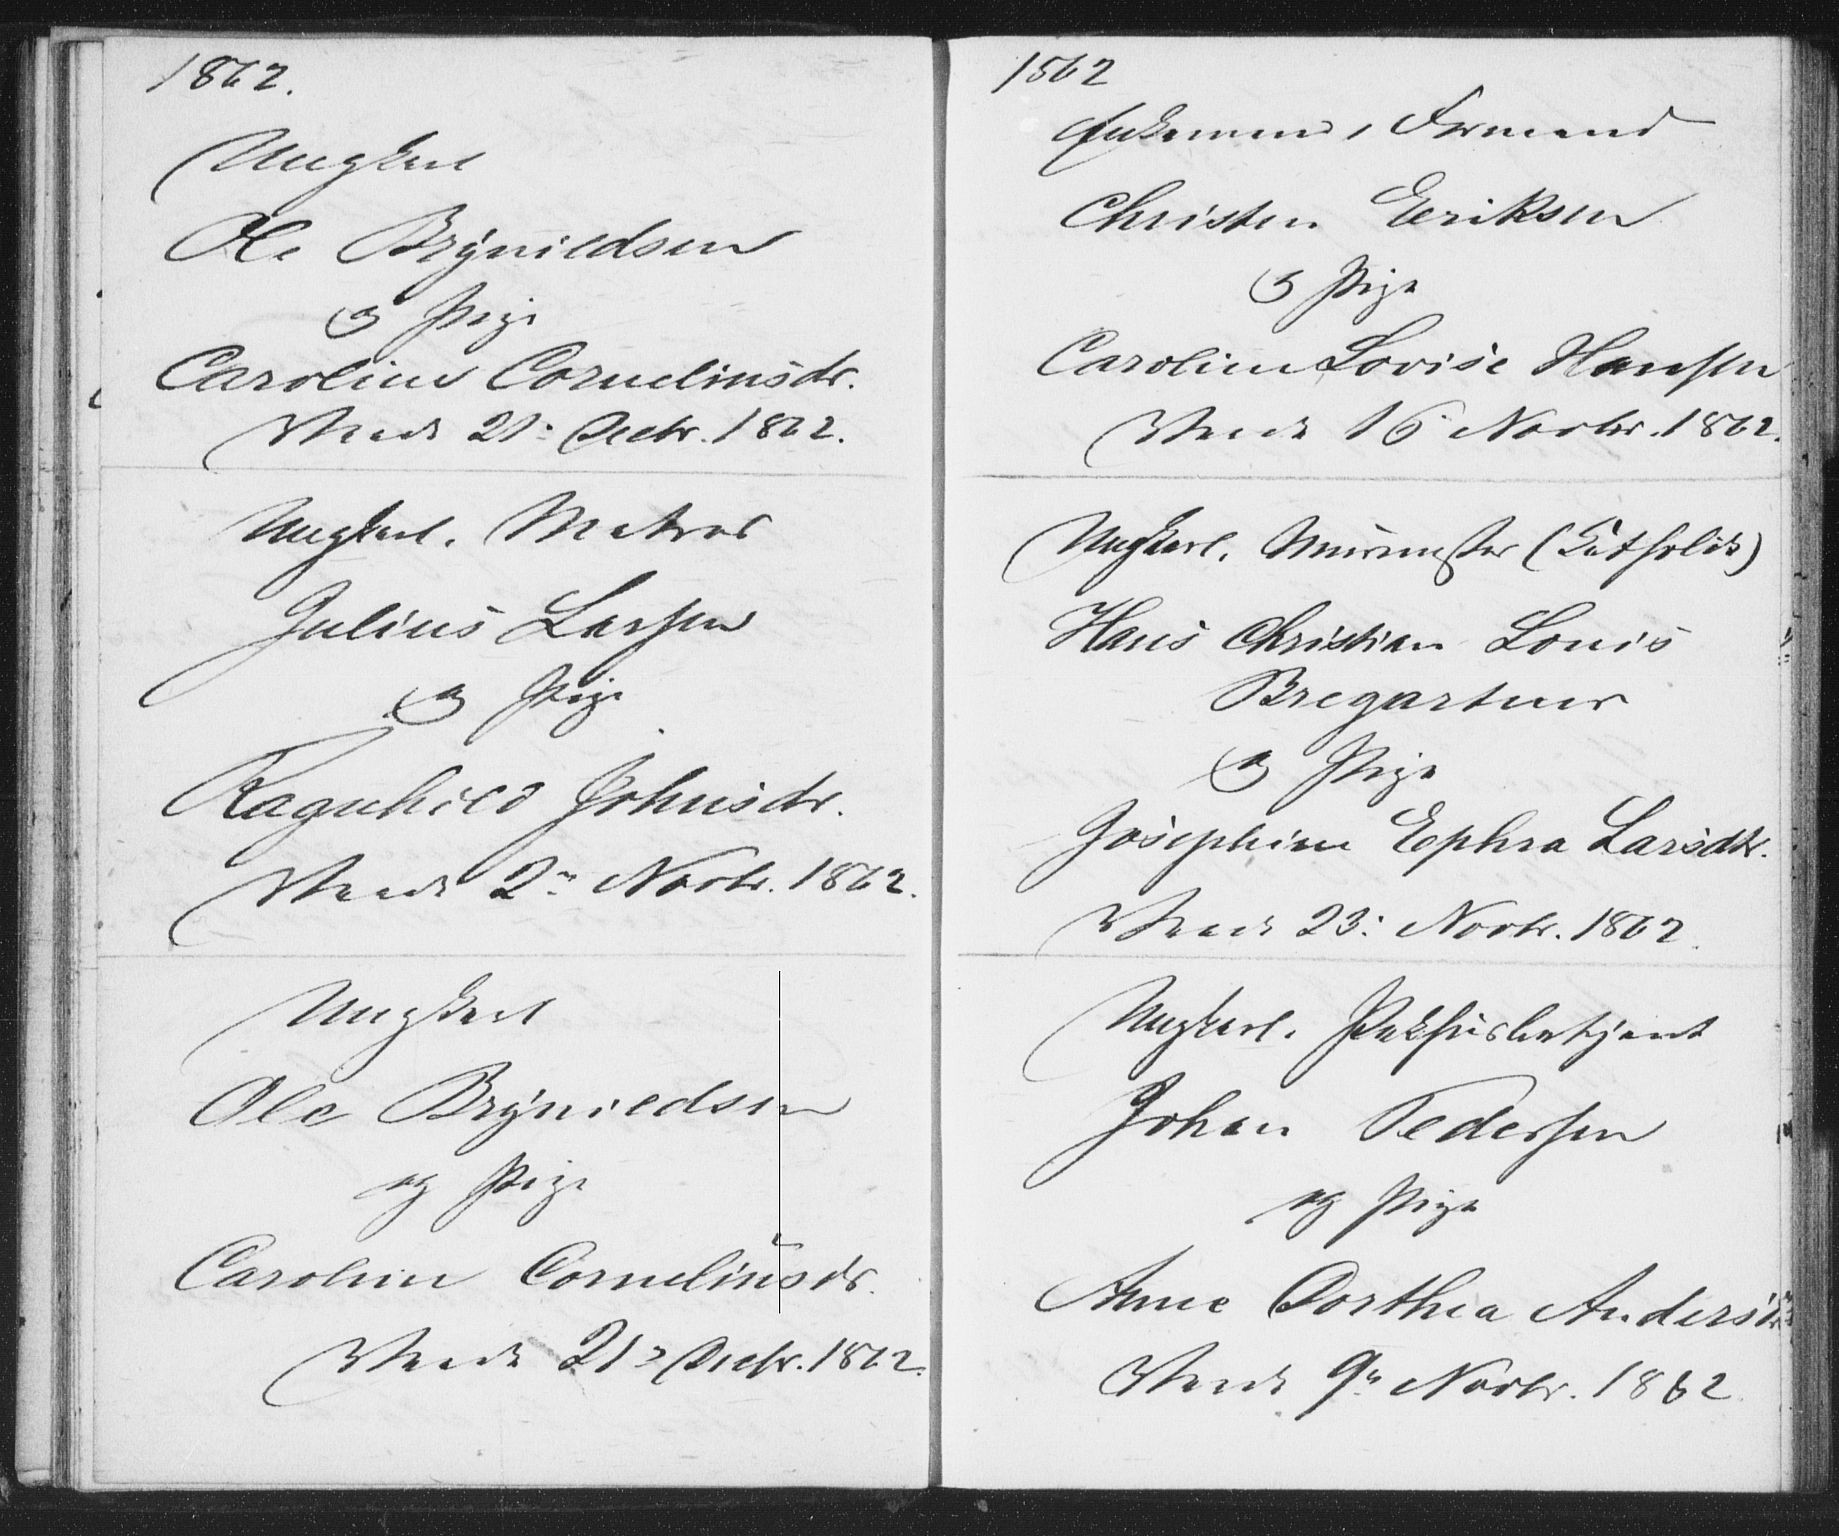 1862.
Ungkarl
Ole Brynildsen
og Pige
Caroline Corneliusdr.
Viede 21: Decbr. 1862.
Ungkarl. Matros
Julius Larsen
og Pige
Ragnhild Johnsdr.
Viede 2n Novbr. 1862.
Ungkarl
Ole Brynildsen
og Pige
Caroline Corneliusdr.
21 Decbr. 1862.
1862
Enkemand, Formand
Christen Eriksen
og Pige
Caroline Lovise Hansen
16 Novbr. 1862.
Ungkarl. Muurmester (Catholik)
Hans Christian Louis
Bregartner
og Pige
Josephine Ephra Larsdtr.
23: Novbr. 1862.
Ungkarl. Pakhusbetjent
Johan Pedersen
og Pige
Anne Dorthea Andersdr
9n Novbr. 1862